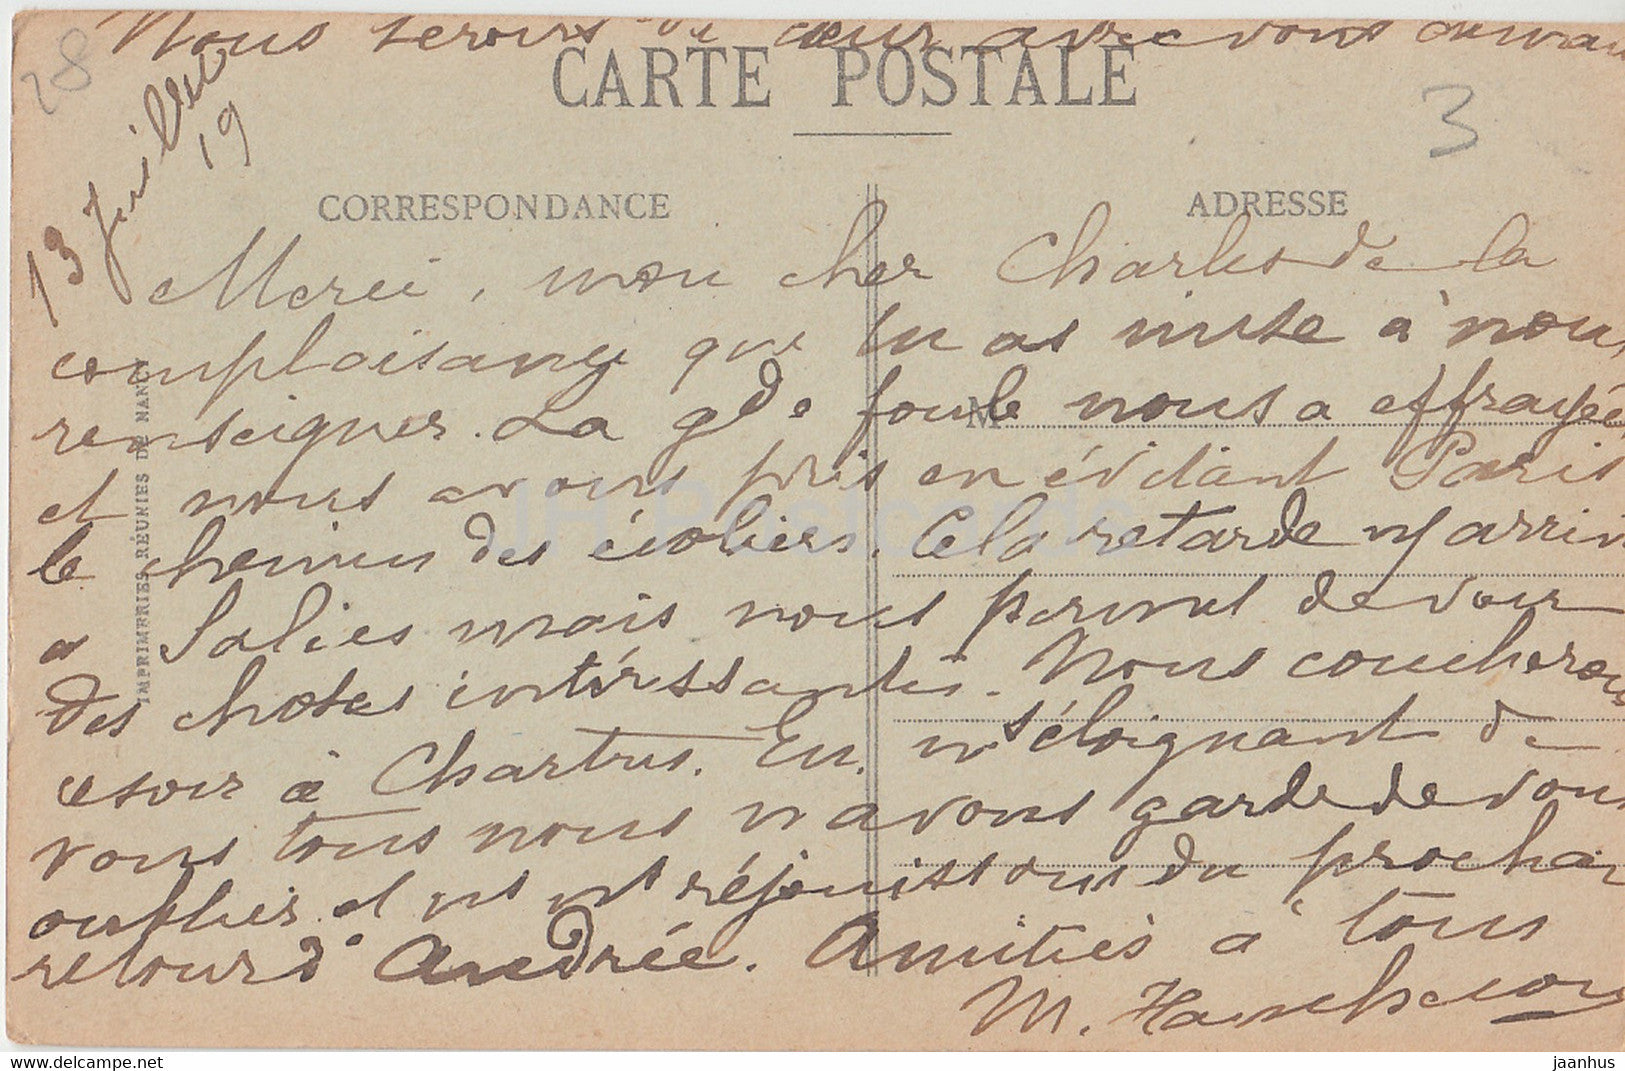 Nous serons de cœur avec vous demain
28
CARTE POSTALE
3
13 Juillet
19
CORRESPONDANCE
ADRESSE
Merci, mon cher Charles de la
complaisance que tu as mise à nous
renseigner. La gde foule nous a effrayée
M
et nous avons pris en évitant Paris
le chemin des écoliers. Cela retarde n/ arrivée
a Salies mais nous permet de voir
des choses intéressantes. Nous coucherons
ce soir à Chartres. En ns éloignant de
vous tous nous n'avons garde de vous
oublier et ns ns réjouissons du prochain
retour d'Andrée. Amitiés à tous
M.
IMPRIMERIES RÉUNIES DE NANCY
JH Postcards
jaanhus - www.delcampe.net